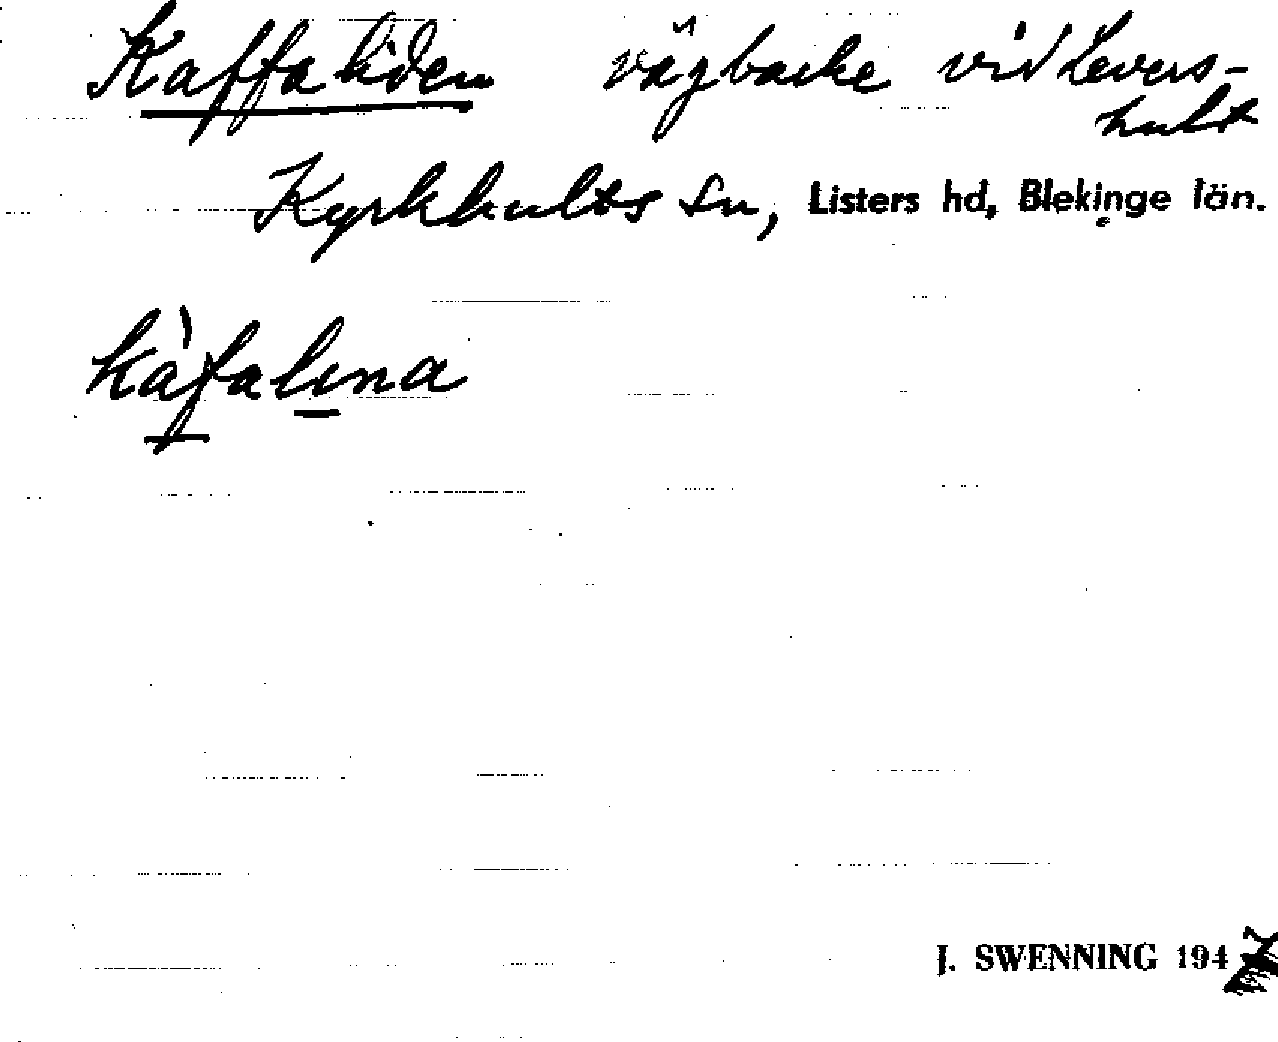 Kaffaliden vägbacke vid Levers-
hult
Kyrkhults sn, Listers hd, Blekinge län.
kàfalına
J. SWENNING 194